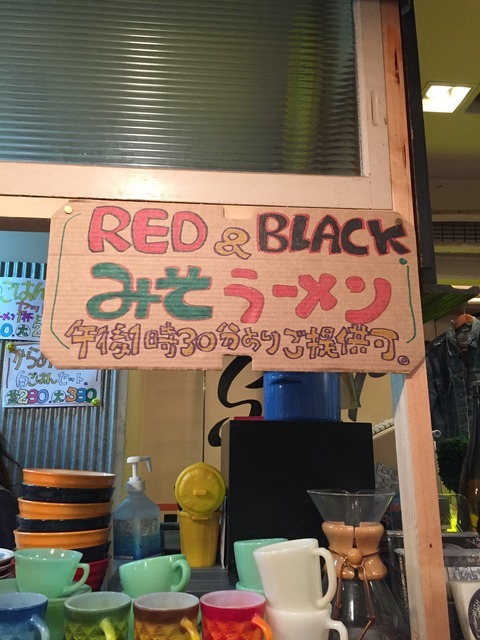 RED & BLACK
みそラーメン
午後1時30分よりご提供可。
ごはんセット.
並280(大)380